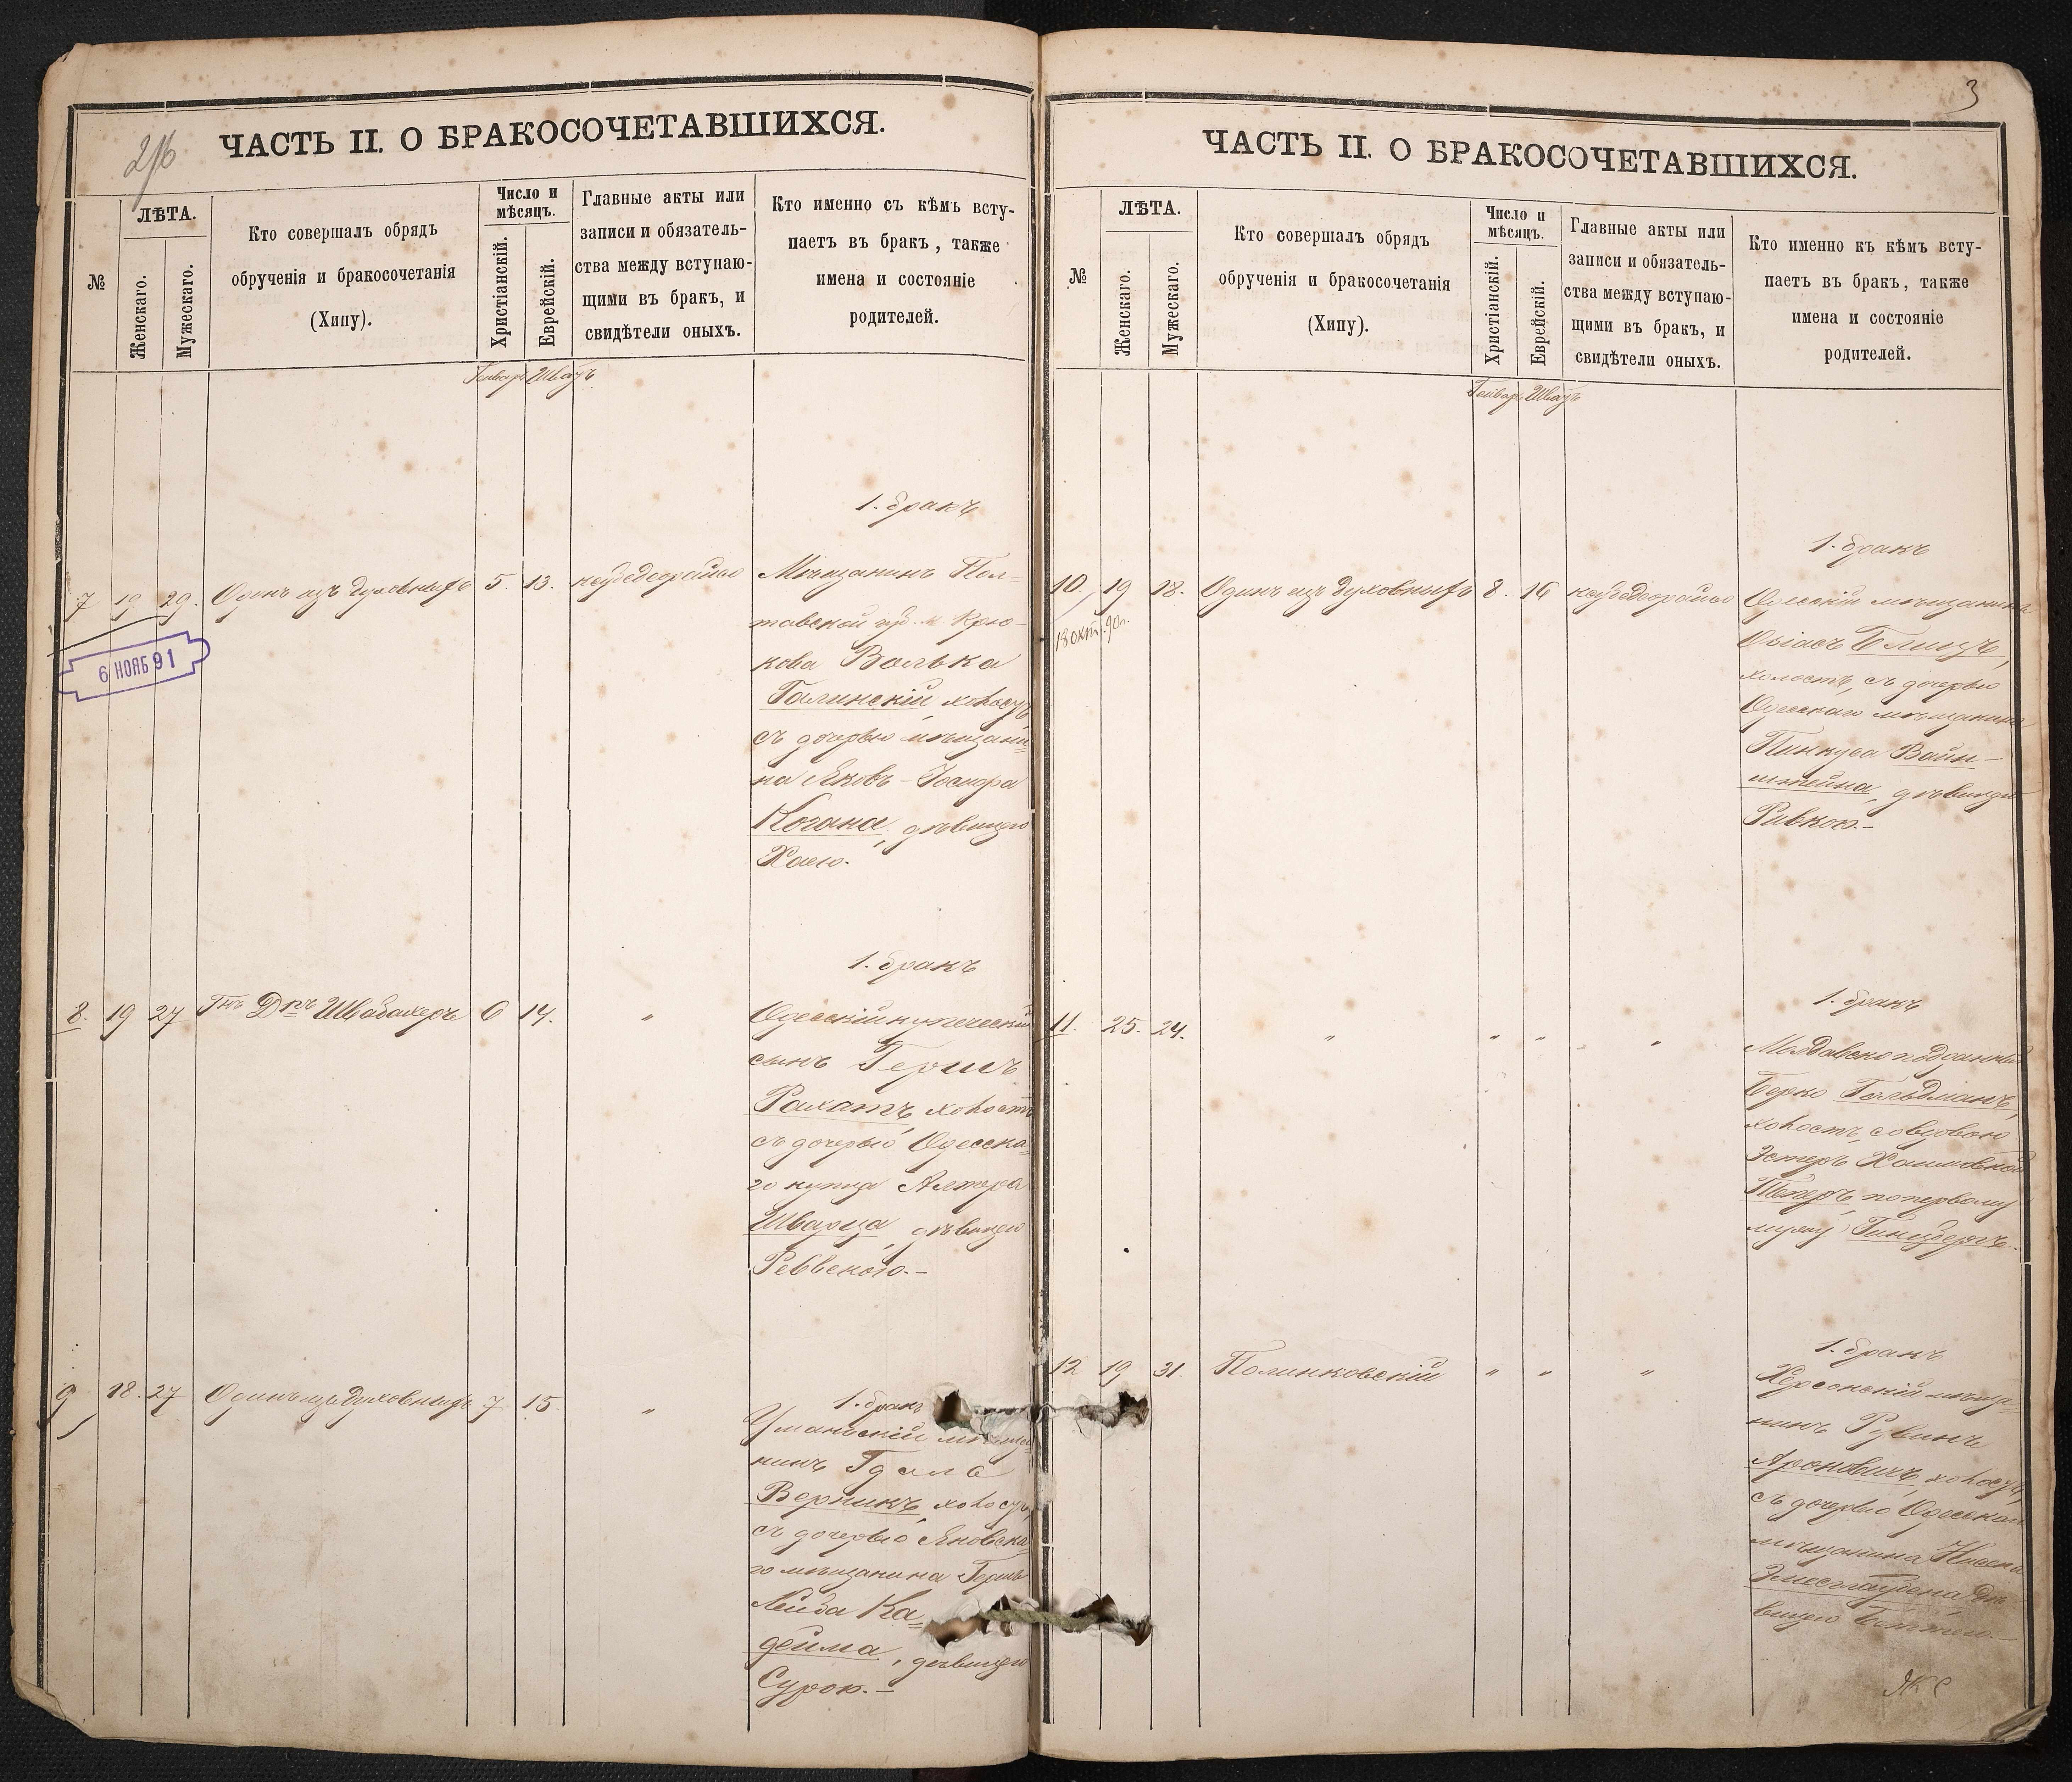 216
ЧАСТЬ II. О БРАКОСОЧЕТАВШИХСЯ.
№
ЛѢТА.
Женскаго.
Мужескаго.
Кто совершалъ обрядъ
обрученія и бракосочетанія
(Хипу).
Число и
мѣсяцъ.
Христіанскій.
Еврейскій.
Главные акты или
записи и обязатель-
ства между вступаю-
щими въ бракъ, и
свидѣтели оныхъ.
Кто именно съ кѣмъ всту-
паетъ въ бракъ, также
имена и состояніе
родителей.
Генварь Швать
1. бракъ
7 19 29. Одинъ изъ духовныхъ 5. 13.
Мѣщанинъ Пол=
тавской губ. м. Крю-
кова Волька
Галинскій, холостъ
съ дочерью мѣщани=
на Яковъ-Іосифа
Когана, дѣвицею
Хаею.
6 НОЯБ 91
1. бракъ
8. 19 27 Гнъ Дръ Швабахеръ 6 14. "
Одесскій купеческій
сынъ Гершъ
Рахатъ, холостъ
съ дочерью Одесска=
го купца Алтера
Шварца, дѣвицею
Реввекою.-
1. бракъ
9 18. 27 Одинъ изъ духовныхъ 7 15. "
Уманьскій мѣща=
нинъ Гдаль
Верникъ, холостъ,
съ дочерью Яновска=
го мѣщанина Гершъ
Лейба Ка=
дейма, дѣвицею
Сурою.-
3
ЧАСТЬ II. О БРАКОСОЧЕТАВШИХСЯ.
№
ЛѢТА.
Женскаго.
Мужескаго.
Кто совершалъ обрядъ
обрученія и бракосочетанія
(Хипу).
Число и
мѣсяцъ.
Христіанскій.
Еврейскій.
Главные акты или
записи и обязатель-
ства между вступаю-
щими въ бракъ, и
свидѣтели оныхъ.
Кто именно къ кѣмъ всту-
паетъ въ бракъ, также
имена и состояніе
родителей.
Генварь Швать
1. бракъ
10. 19 28. Одинъ изъ духовныхъ 8. 16
18 окт. 90г.
Одесскій мѣщанинъ
Блицъ,
холостъ, съ дочерью
Одесскаго мѣщанина
Пинкуса Вайн-
штейна, дѣвицею
Ривкою.-
1. бракъ
11. 25. 24. " " " "
Берко Гольдманъ,
холостъ, со вдовою
Эстеръ Хаимовной
по первому
мужу Гинцбергъ.
1. бракъ
12 19 31. Полинковскій " " "
Херсонскій мѣща=
нинъ Рувинъ
Ароновичъ, холостъ,
съ дочерью Одесскаго
мѣщанина